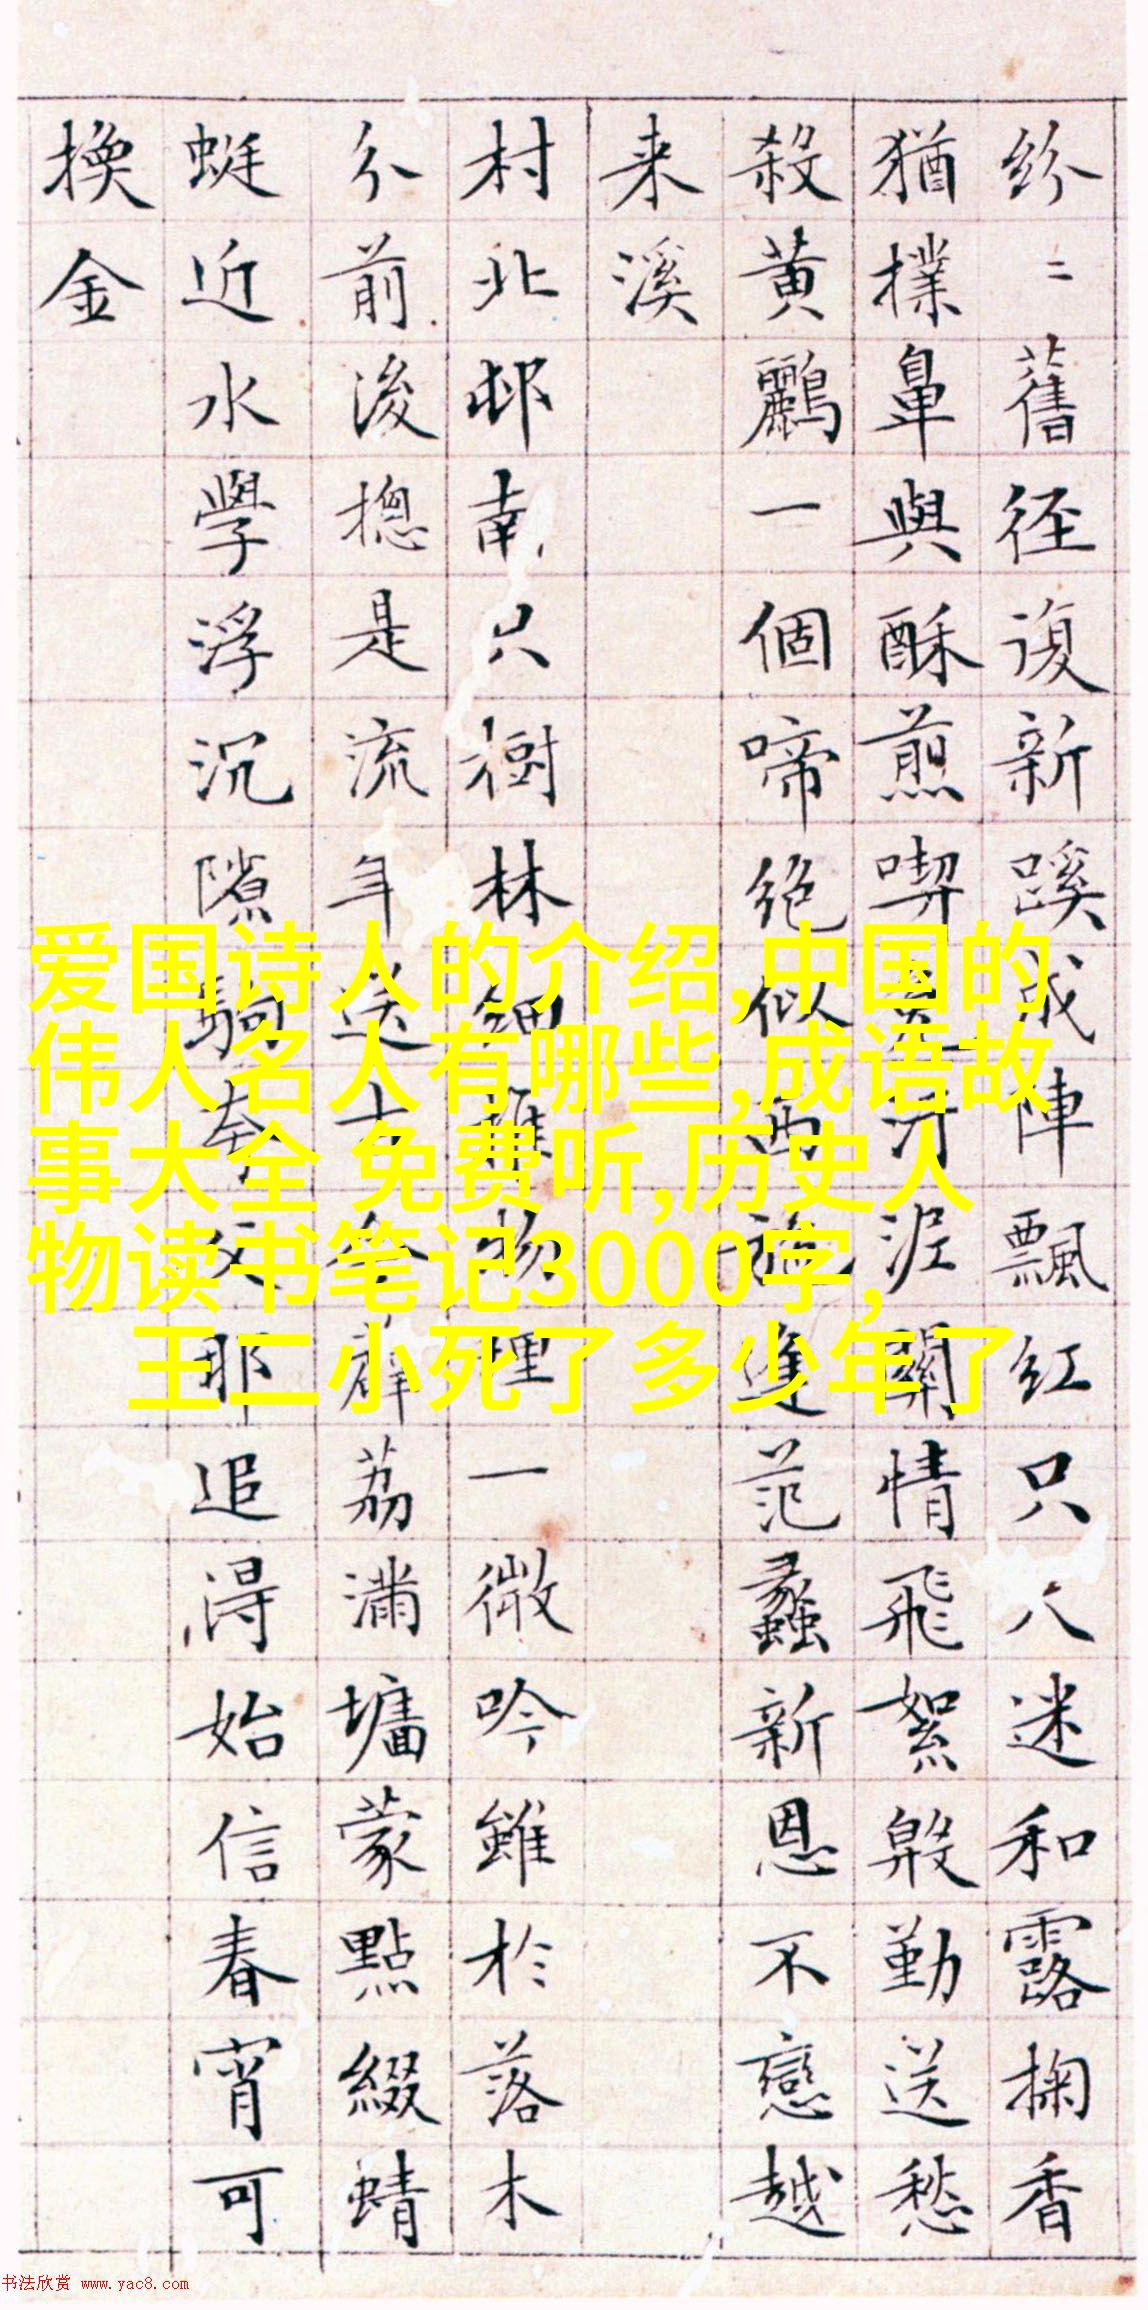 紛二舊徑復新蹊成陣飄紅只迷和露掬香
猶撲鼻與酥煎喫汙泥關情飛絮殷勤送愁
殺黃鸝一個啼絶似西施進范蠡新恩不戀越
来溪
村北邨南只樹林細推物理一微吟雖於落木
分前後揔是流年送古今薜荔滿墉蒙點綴蜻
蜓近水學浮沉隙駒夸父那追得始信春宵可
換金
爱国诗人的介绍,中国的
伟人名人有哪些,成语故
事大全 免费听,历史人
物读书笔记3000字,
王二小死了多少年了
书法欣赏 www.yac8.com